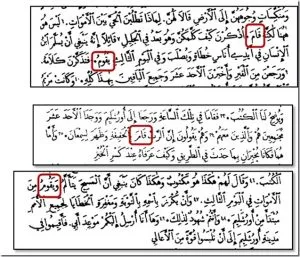 وَمُنَكِّسَاتٍ وُجُوهَهُنَّ إِلَى الْأَرْضِ قَالَا لَهُنَّ: «لِمَاذَا تَطْلُبْنَ الْحَيَّ بَيْنَ الْأَمْوَاتِ؟ لَيْسَ هُوَ
هٰهُنَا لٰكِنَّهُ قَامَ! اُذْكُرْنَ كَيْفَ كَلَّمَكُنَّ وَهُوَ بَعْدُ فِي الْجَلِيلِ قَائِلًا: إِنَّهُ يَنْبَغِي أَنْ يُسَلَّمَ ابْنُ
الْإِنْسَانِ فِي أَيْدِي أُنَاسٍ خُطَاةٍ وَيُصْلَبَ وَفِي الْيَوْمِ الثَّالِثِ يَقُومُ». فَتَذَكَّرْنَ كَلَامَهُ.
وَرَجَعْنَ مِنَ الْقَبْرِ وَأَخْبَرْنَ الْأَحَدَ عَشَرَ وَجَمِيعَ الْبَاقِينَ بِهٰذَا كُلِّهِ.
الْكُتُبَ. فَقَامَا فِي تِلْكَ السَّاعَةِ وَرَجَعَا إِلَى أُورُشَلِيمَ وَوَجَدَا الْأَحَدَ عَشَرَ
مُجْتَمِعِينَ هُمْ وَالَّذِينَ مَعَهُمْ وَهُمْ يَقُولُونَ إِنَّ الرَّبَّ قَامَ بِالْحَقِيقَةِ وَظَهَرَ لِسِمْعَانَ. وَأَمَّا
هُمَا فَكَانَا يُخْبِرَانِ بِمَا حَدَثَ فِي الطَّرِيقِ وَكَيْفَ عَرَفَاهُ عِنْدَ كَسْرِ الْخُبْزِ
الْكُتُبَ. وَقَالَ لَهُمْ هٰكَذَا هُوَ مَكْتُوبٌ وَهٰكَذَا كَانَ يَنْبَغِي أَنَّ الْمَسِيحَ يَتَأَلَّمُ وَيَقُومُ مِنَ
الْأَمْوَاتِ فِي الْيَوْمِ الثَّالِثِ. وَأَنْ يُكْرَزَ بِاسْمِهِ بِالتَّوْبَةِ وَمَغْفِرَةِ الْخَطَايَا لِجَمِيعِ الْأُمَمِ
مُبْتَدَأً مِنْ أُورُشَلِيمَ. وَأَنْتُمْ شُهُودٌ لِذٰلِكَ. وَهَا أَنَا أُرْسِلُ إِلَيْكُمْ مَوْعِدَ أَبِي. فَأَقِيمُوا فِي
مَدِينَةِ أُورُشَلِيمَ إِلَى أَنْ تُلْبَسُوا قُوَّةً مِنَ الْأَعَالِي